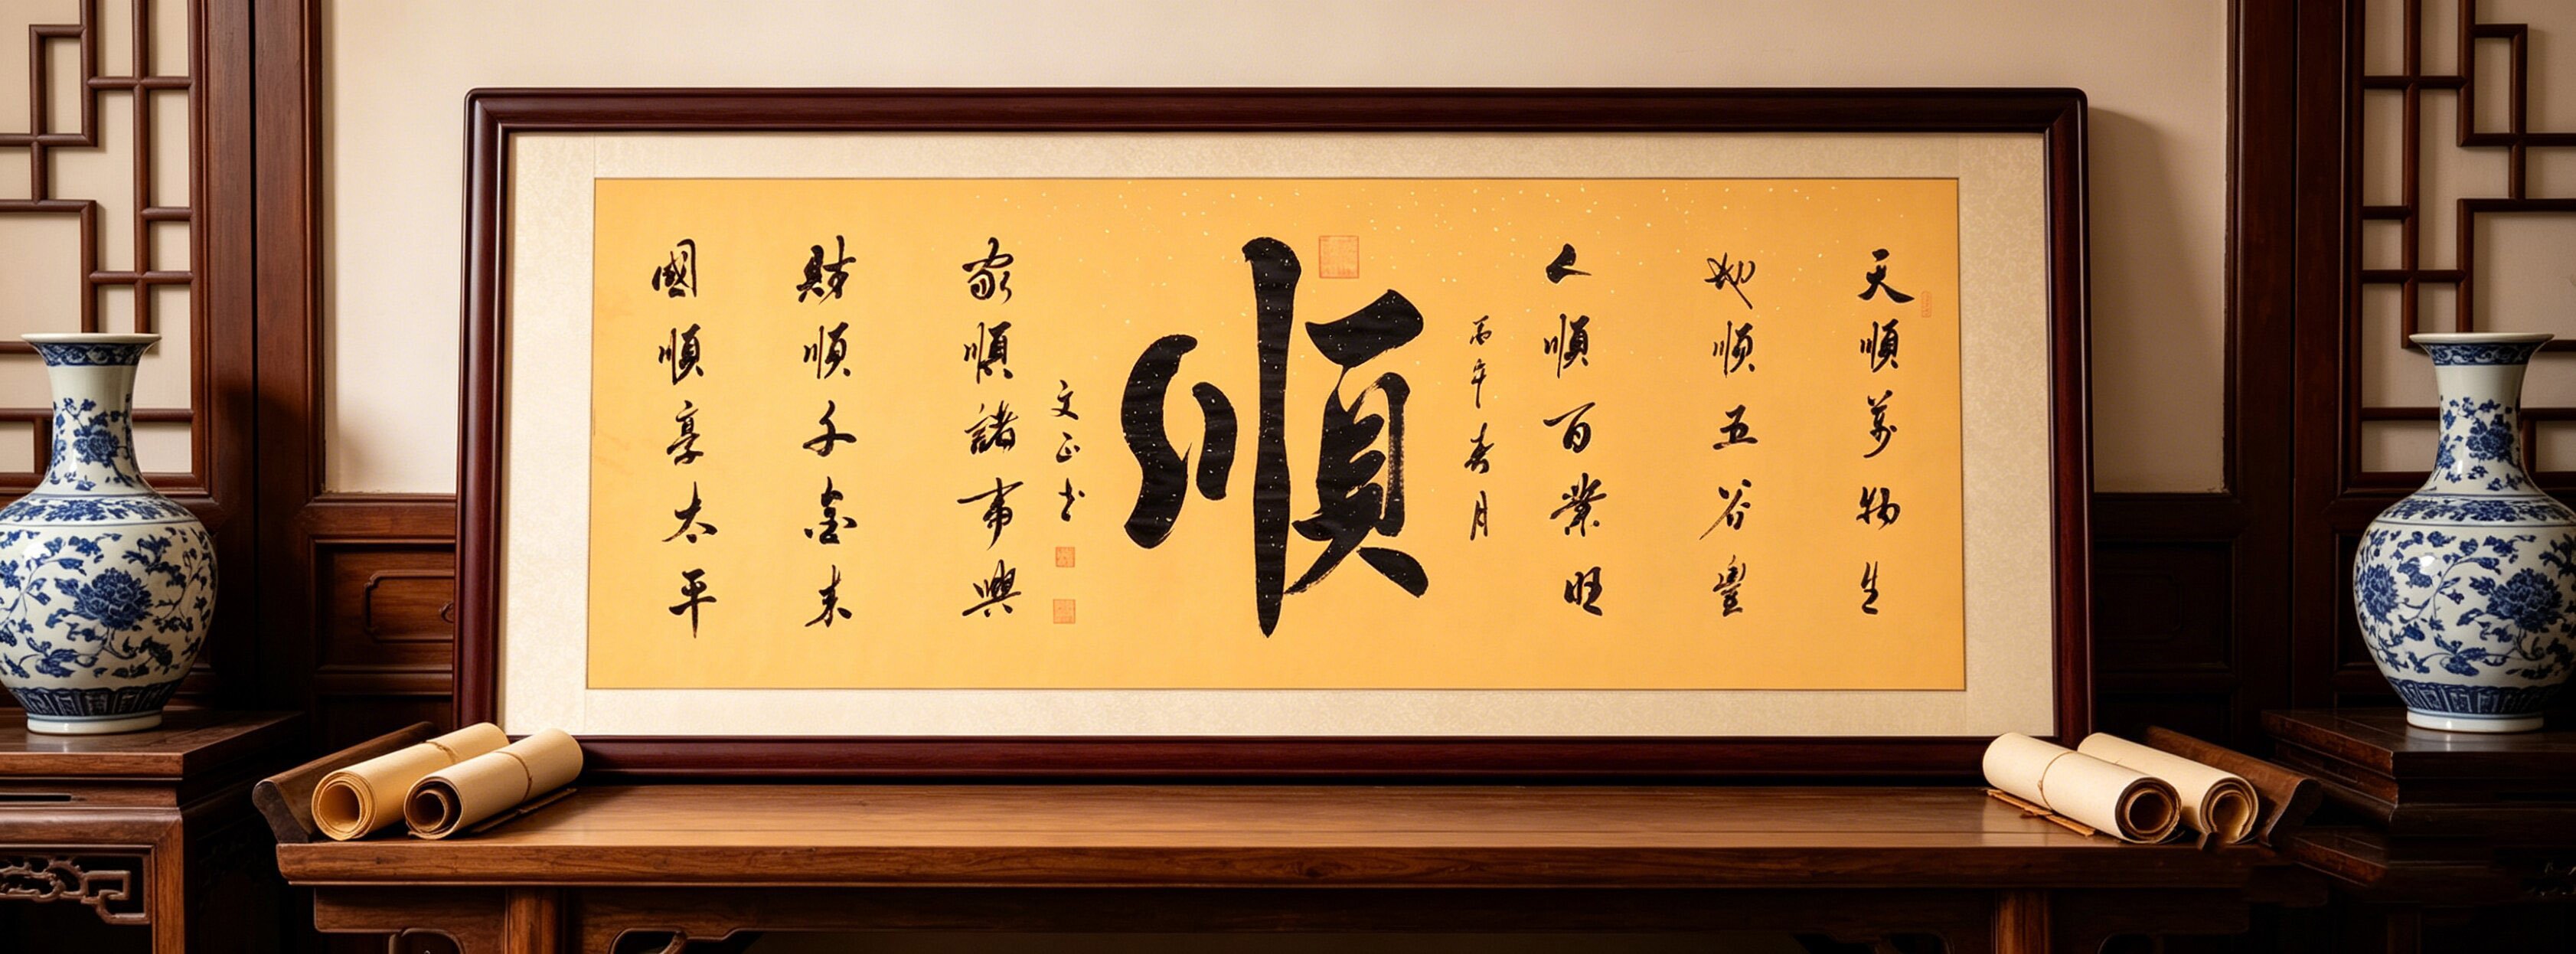 天順萬物生
地順五谷豐
人順百業旺
丙午春月
順
家順諸事興
文正书
財順千金来
國順享太平